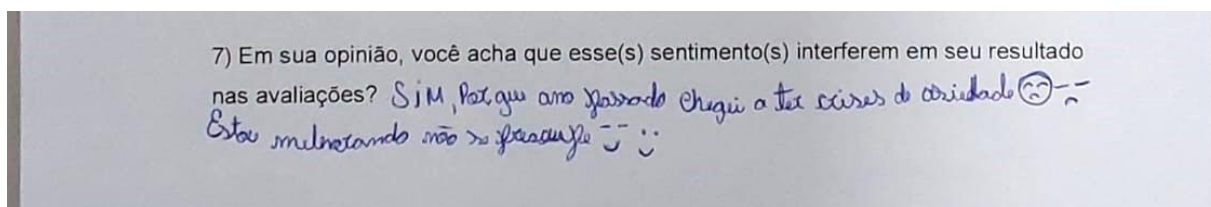 7) Em sua opinião, você acha que esse(s) sentimento(s) interferem em seu resultado
nas avaliações? SiM, Porque ano passado cheguei a ter crises de ansiedade
Estou melhorando não se preocupe